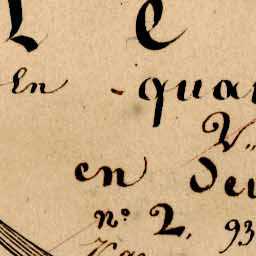 L e
En - qua
V
en De
n.º 2. 93